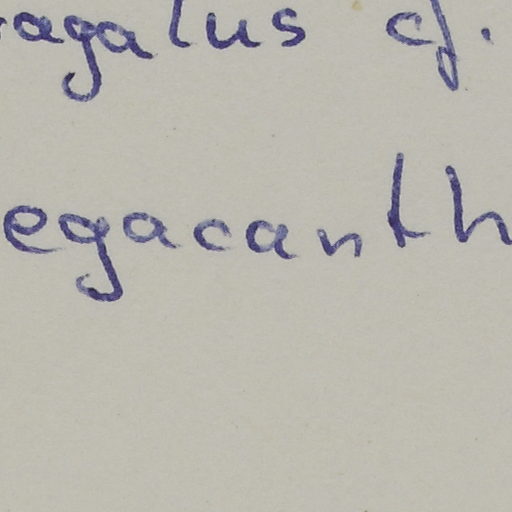 ragalus cf.
egacanth